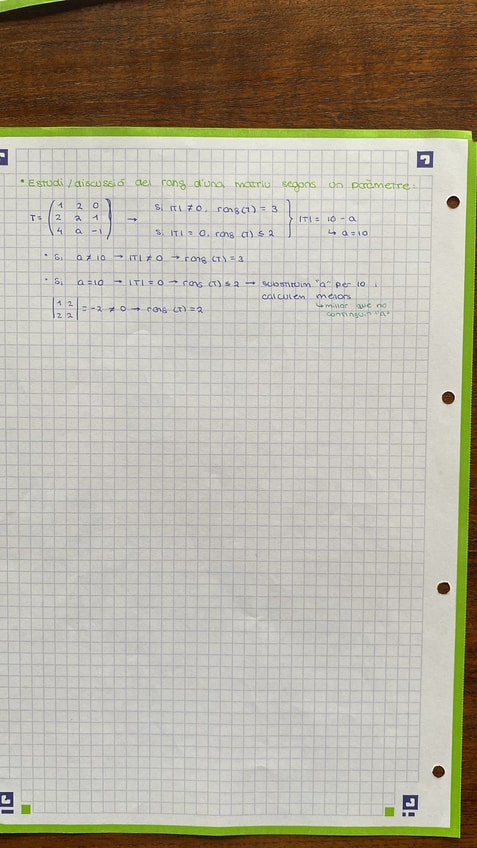 • Estudi/discussió del rang d'una matriu segons un paràmetre:
T = ( 1 2 0 / 2 2 1 / 4 a -1 ) → Si |T| ≠ 0, rang(T) = 3 } |T| = 10 - a
Si |T| = 0, rang (T) ≤ 2 ↳ a = 10
· Si a ≠ 10 → |T| ≠ 0 → rang (T) = 3
· Si a = 10 → |T| = 0 → rang (T) ≤ 2 → substituim "a" per 10 i
calculem menors
↳ millor que no
continguin "a"
| 1 2 / 2 2 | = -2 ≠ 0 → rang (T) = 2